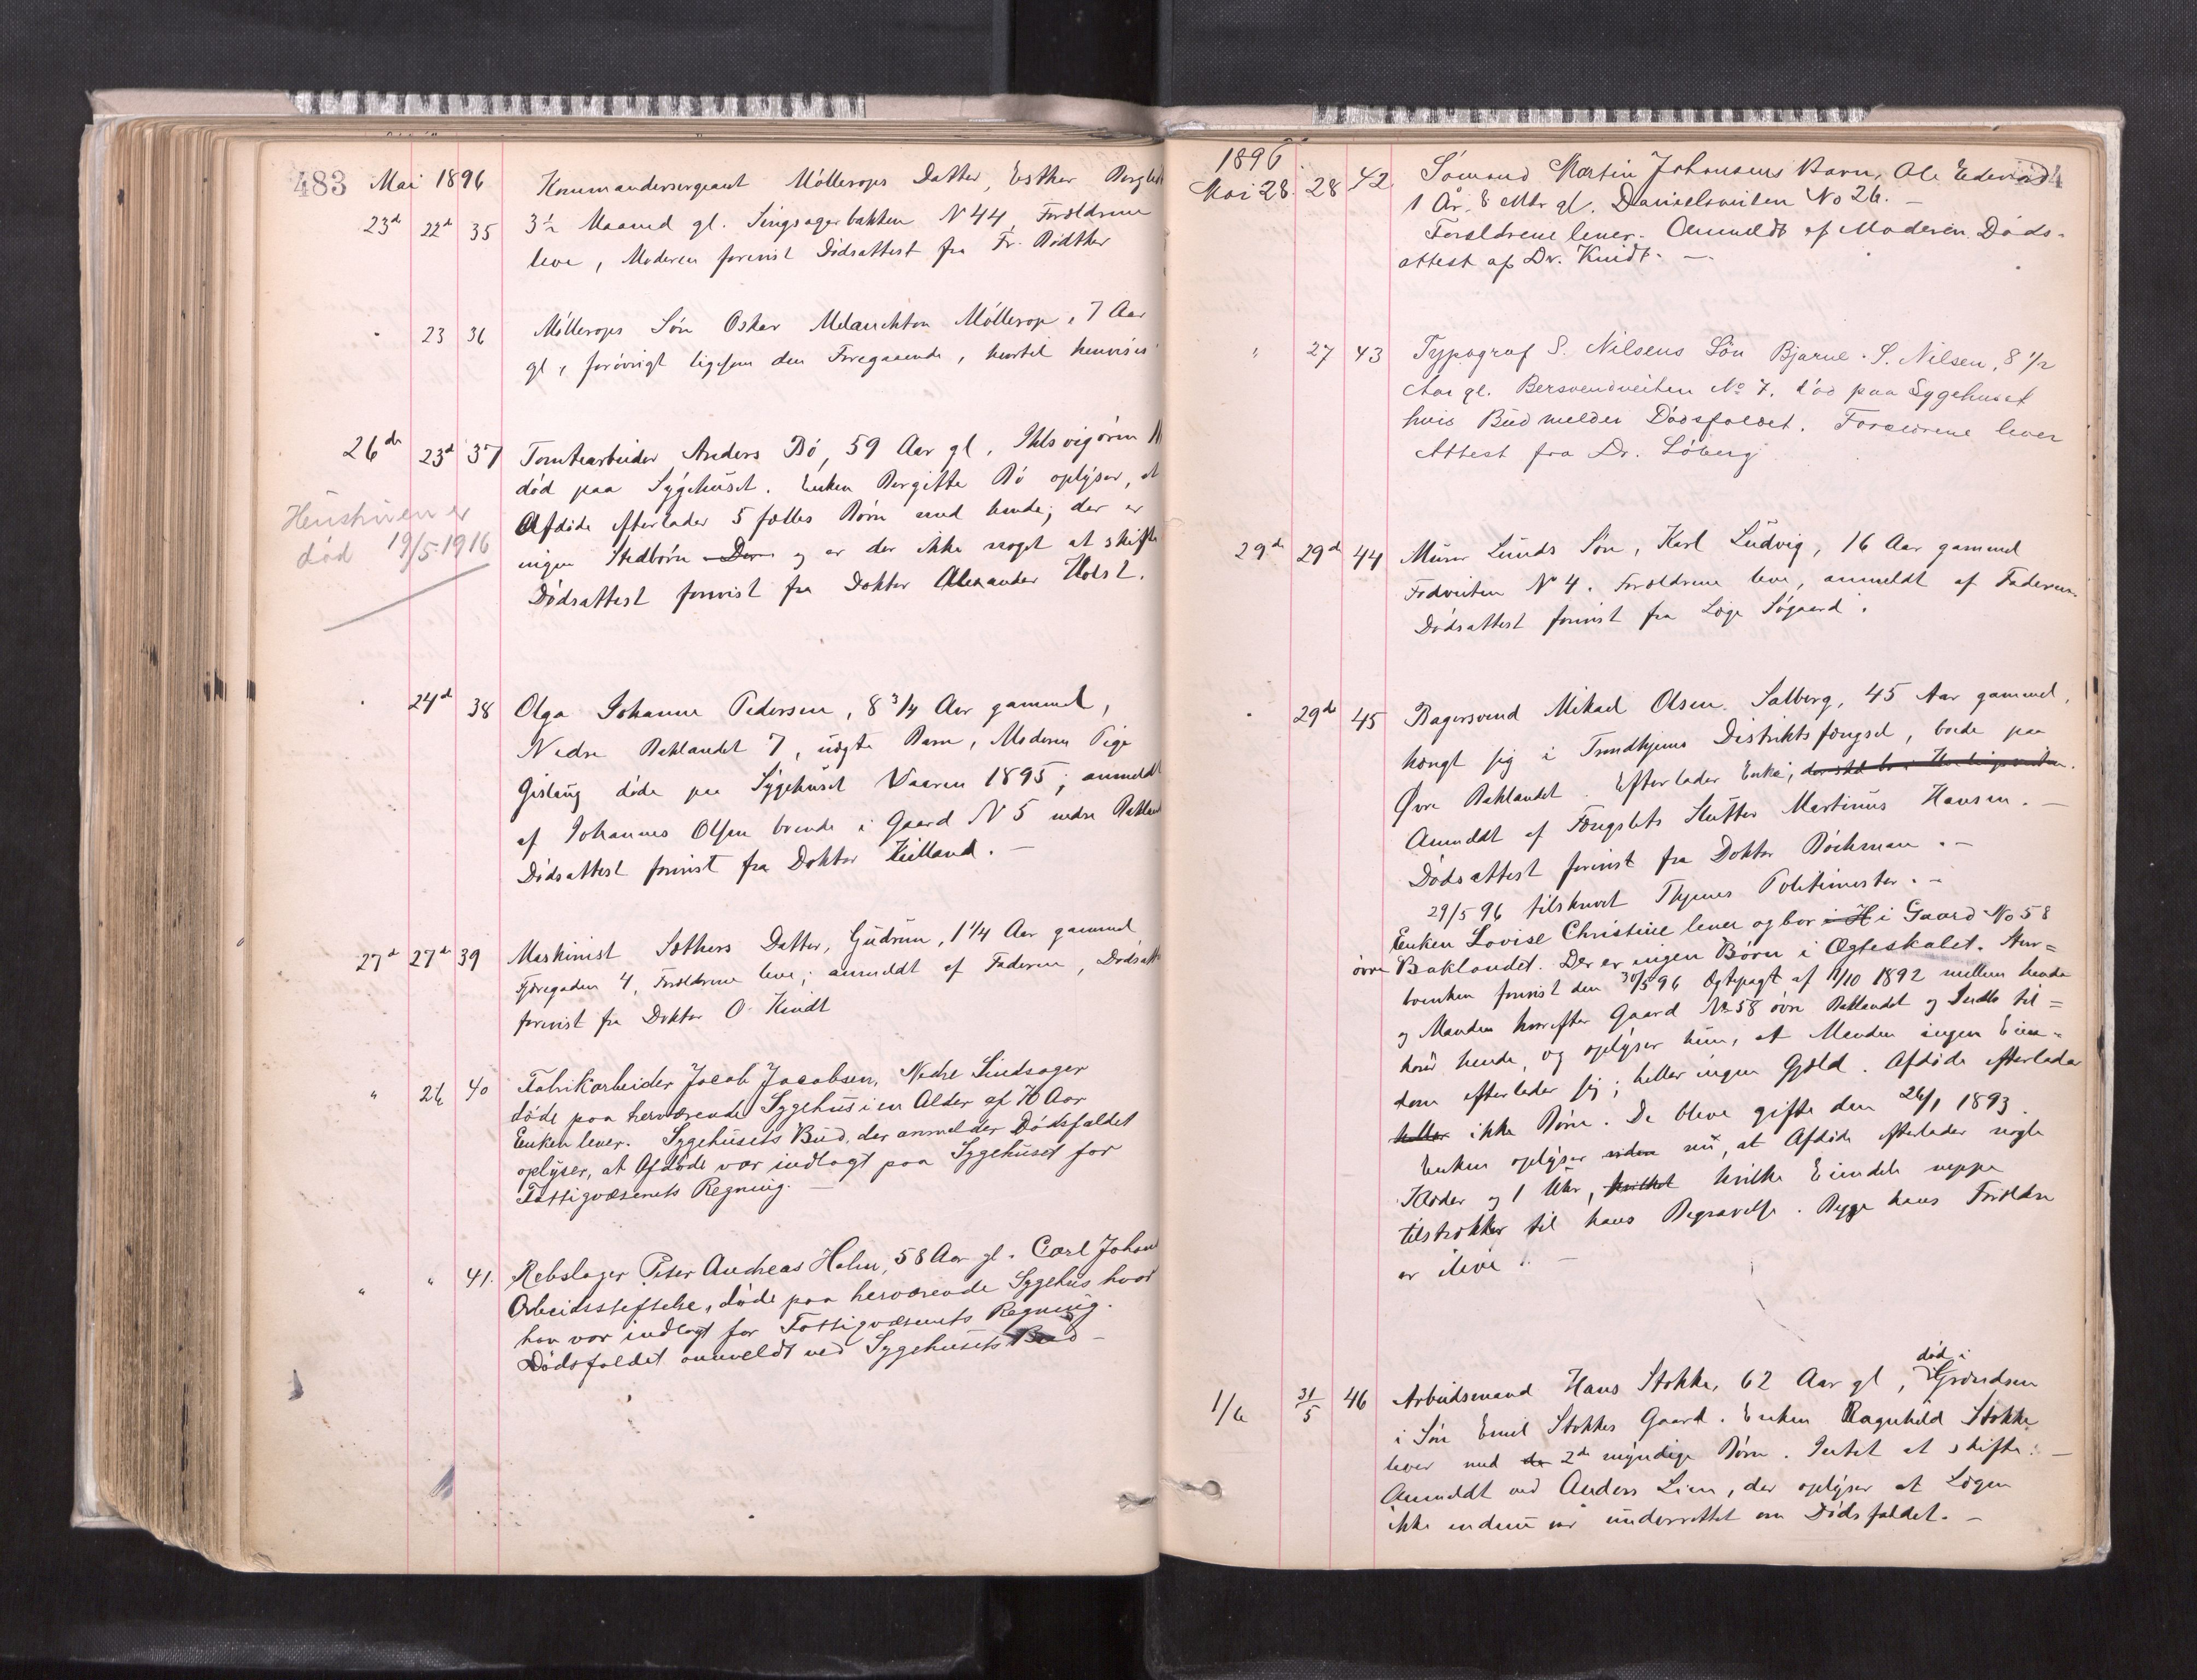 483 Mai 1896 Kommandersergeant Möllerops Datter, Esther
23d 22d 35 3½ Maaned gl. Singsagerbakken N 44, Forældrene
leve, Moderen forevist Dödsattest fra Fr. Bödtker
" 23 36 Möllerops Sön Oskar Melanchton Möllerop, 7 Aar
gl, forövrigt ligesom den Foregaaende, hvortil henvises
26de 23d 37 Tomtearbeider Anders Bö, 59 Aar gl, Ihlsvigören
död paa Sygehuset. Enken Bergitte Bö oplyser, at
Afdöde efterlader 5 fælles Börn med hende; der er
ingen Stedbörn Der og er der ikke noget at skifte
Dödsattest forevist fra Doktor Alexander Holst.
Heustruen er
död 19/5 1916
" 24d 38 Olga Johanne Pedersen, 8 3/4 Aar gammel,
Nedre Baklandet 7, uægte Barn, Moderen Pige
Gislaug döde paa Sygehuset Vaaren 1895; anmeldt
af Johannes Olsen boende i Gaard N 5 nedre Bakland
Dödsattest forevist fra Doktor Kielland. -
27de 27de 39 Maskinist Sæthers Datter, Gudrun, 1 1/4 Aar gammel
Fjæregaden 4, Forældrene leve; anmeldt af Faderen, Dödsatt
forevist fra Doktor O. Kindt
" 26 40 Fabrikarbeider Jacob Jacobsen, Nedre Sindsager
döde paa herværende Sygehus i en Alder af 70 Aar
Enken lever. Sygehusets Bud, der anmelder Dödsfaldet
oplyser, at Afdöde var indlagt paa Sygehuset for
Fattigvæsenets Regning. -
" " 41. Rebslager Peter Andreas Holm, 58 Aar gl. Carl Johans
Arbeidsstiftelse, döde paa herværende Sygehus hvor
han var indlagt for Fattigvæsenets Regning.
Dödsfaldet anmeldt ved Sygehusets Bud -
1896
Mai 28. 28 42 Sömand Martin Johansens Barn, Ole Edevard
1 År. 8 Mdr gl. Danielsveiten No 26. -
Forældrene lever. Anmeldt af Moderen. Döds-
attest af Dr. Kindt. -
" 27 43 Typograf S. Nilsens Sön Bjarne S. Nilsen, 8 1/2
Aar gl. Bersvendveiten No 7, död paa Sygehuset
hvis Bud melder Dödsfaldet. Forældrene lever
Attest fra Dr. Löberg
29de 29d 44 Murer Lunds Sön, Karl Ludvig, 16 Aar gammel
Fedveiten N 4. Forældrene leve, anmeldt af Faderen.
Dödsattest forevist fra Læge Sögaard.
" 29de 45 Bagersvend Mikael Olsen Salberg, 45 Aar gammel,
hængt sig i Trondhjems Distriktsfængsel, boede paa
Øvre Baklandet. Efterlader Enke,
Anmeldt af Fængslets Slutter Martinus Hansen. -
Dödsattest forevist fra Doktor Böckman. -
29/5 96 tilskrevet Thjems Politimester. -
Enken Lovise Christine lever og bor i H i Gaard No 58
övre Baklandet. Der er ingen Börn i Ægteskabet. Enr=
boenken forevist den 30/5 96 Ægtepagt af 11/10 1892 mellem hende
og Manden hvorefter Gaard No 58 övre Baklandet og Indbo til=
hörer hende, og oplyser hun, at Manden ingen Eien-
dom efterlader sig; heller ingen Gjæld. Afdöde efterlader
heller ikke Börn. De bleve gifte den 26/1 1893.
Enken oplyser viden nu, at Afdöde efterlader nogle
Klæder og 1 Uhr, hvilket hvilke Eiendele neppe
tilstrækker til hans Begravelse. Begge hans Forældre
er ilive. -
1/6 31/5 46 Arbeidsmand Hans Stokke, 62 Aar gl, död i Grændsen
i Sön Emil Stokkes Gaard. Enken Ragnhild Stokke
lever med de 2de myndige Börn. Intet at skifte. -
Anmeldt ved Anders Lien, der oplyser at Lægen
ikke endnu var underrettet om Dödsfaldet. -